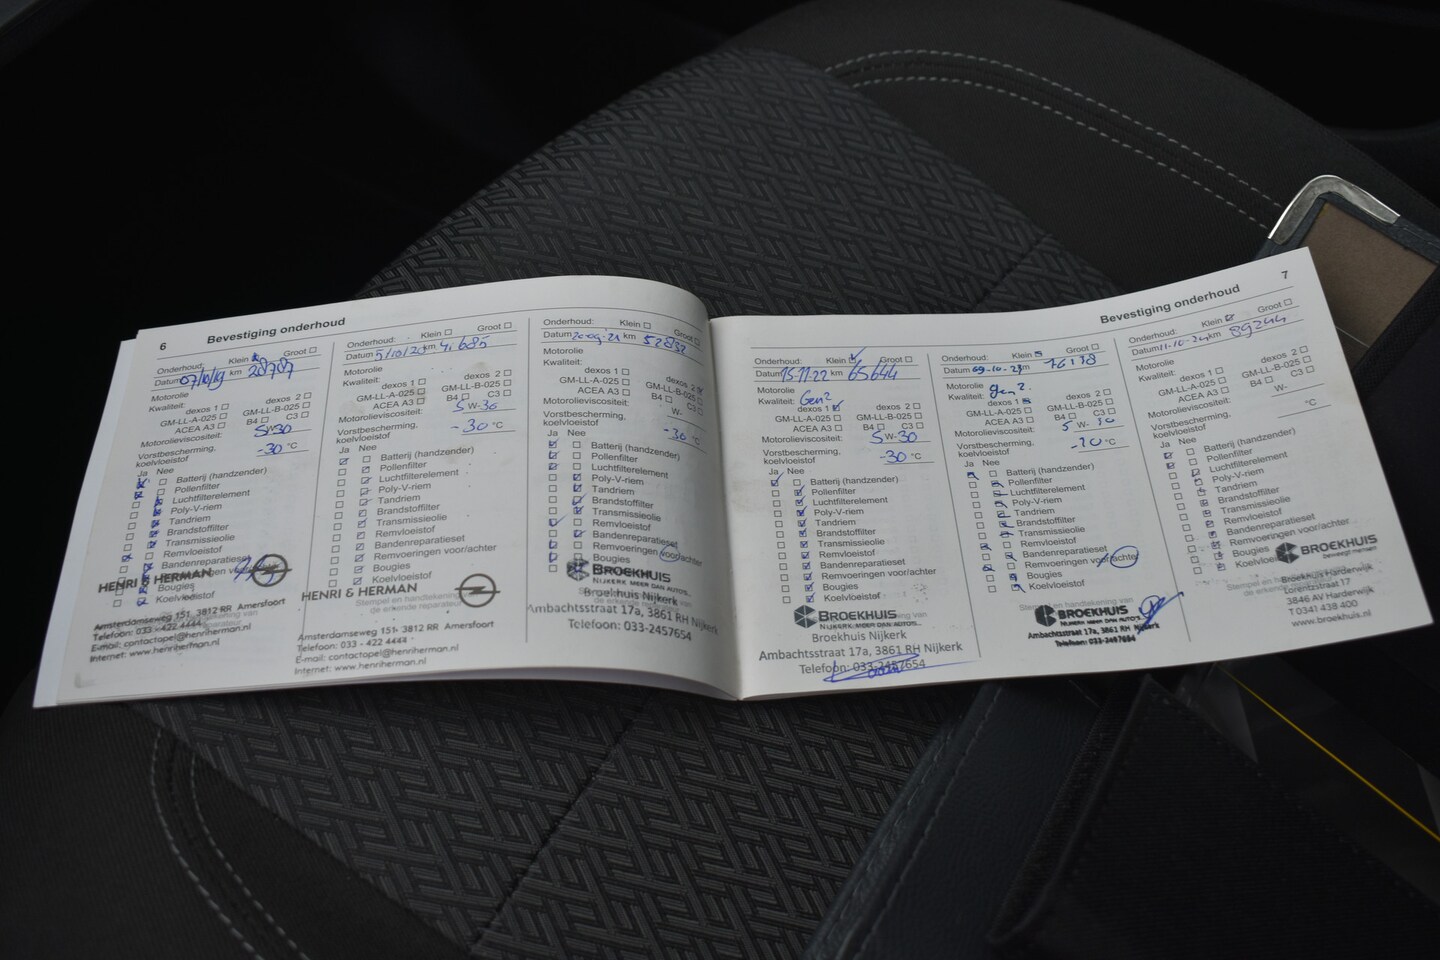 6 Bevestiging onderhoud
Onderhoud: Klein Groot
Datum 07/10/19 km 28707
Motorolie
Kwaliteit: dexos 1 dexos 2
GM-LL-A-025 GM-LL-B-025
ACEA A3 B4 C3
Motorolieviscositeit: 5W-30
Vorstbescherming, koelvloeistof -30 °C
Ja Nee
Batterij (handzender)
Pollenfilter
Luchtfilterelement
Poly-V-riem
Tandriem
Brandstoffilter
Transmissieolie
Remvloeistof
Bandenreparatieset
Bougies
Koelvloeistof
HENRI & HERMAN
Amsterdamseweg 151, 3812 RR Amersfoort
Telefoon: 033 - 422 4444
E-mail: contactopel@henriherman.nl
Internet: www.henriherman.nl
Onderhoud: Klein Groot
Datum 5/10/20 km 41685
Motorolie
Kwaliteit: dexos 1 dexos 2
GM-LL-A-025 GM-LL-B-025
ACEA A3 B4 C3
Motorolieviscositeit: 5W-30
Vorstbescherming, koelvloeistof -30 °C
Ja Nee
Batterij (handzender)
Pollenfilter
Luchtfilterelement
Poly-V-riem
Tandriem
Brandstoffilter
Transmissieolie
Remvloeistof
Bandenreparatieset
Remvoeringen voor/achter
Bougies
Koelvloeistof
HENRI & HERMAN
Stempel en handtekening van
de erkende reparateur
Amsterdamseweg 151- 3812 RR Amersfoort
Telefoon: 033 - 422 4444
E-mail: contactopel@henriherman.nl
Internet: www.henriherman.nl
Onderhoud: Klein Groot
Datum km 52832
Motorolie
Kwaliteit: dexos 1 dexos 2
GM-LL-A-025 GM-LL-B-025
ACEA A3 B4 C3
Motorolieviscositeit: W-
Vorstbescherming, koelvloeistof -30 °C
Ja Nee
Batterij (handzender)
Pollenfilter
Luchtfilterelement
Poly-V-riem
Tandriem
Brandstoffilter
Transmissieolie
Remvloeistof
Bandenreparatieset
Remvoeringen voor/achter
Bougies
Koelvloeistof
BROEKHUIS
NIJKERK MEER DAN AUTO'S
Broekhuis Nijkerk
Ambachtsstraat 17a, 3861 RH Nijkerk
Telefoon: 033-2457654
Bevestiging onderhoud 7
Onderhoud: Klein Groot
Datum 15-11-22 km 65644
Motorolie
Kwaliteit: Gen2
dexos 1 dexos 2
GM-LL-A-025 GM-LL-B-025
ACEA A3 B4 C3
Motorolieviscositeit: 5W-30
Vorstbescherming, koelvloeistof -30 °C
Ja Nee
Batterij (handzender)
Pollenfilter
Luchtfilterelement
Poly-V-riem
Tandriem
Brandstoffilter
Transmissieolie
Remvloeistof
Bandenreparatieset
Remvoeringen voor/achter
Bougies
Koelvloeistof
BROEKHUIS
NIJKERK MEER DAN AUTO'S
Broekhuis Nijkerk
Ambachtsstraat 17a, 3861 RH Nijkerk
Telefoon: 033-2457654
Onderhoud: Klein Groot
Datum km 76138
Motorolie
Kwaliteit: gen 2
dexos 1 dexos 2
GM-LL-A-025 GM-LL-B-025
ACEA A3 B4 C3
Motorolieviscositeit: 5 W-
Vorstbescherming, koelvloeistof °C
Ja Nee
Batterij (handzender)
Pollenfilter
Luchtfilterelement
Poly-V-riem
Tandriem
Brandstoffilter
Transmissieolie
Remvloeistof
Bandenreparatieset
Remvoeringen voor/achter
Bougies
Koelvloeistof
Stempel en handtekening van
BROEKHUIS
NIJKERK MEER DAN AUTO'S
Ambachtsstraat 17a, 3861 RH Nijkerk
Telefoon: 033-2457654
Onderhoud: Klein Groot
Datum 11-10-24 km 89244
Motorolie
Kwaliteit: dexos 1 dexos 2
GM-LL-A-025 GM-LL-B-025
ACEA A3 B4 C3
Motorolieviscositeit: W-
Vorstbescherming, koelvloeistof °C
Ja Nee
Batterij (handzender)
Pollenfilter
Luchtfilterelement
Poly-V-riem
Tandriem
Brandstoffilter
Transmissieolie
Remvloeistof
Bandenreparatieset
Remvoeringen voor/achter
Bougies
Koelvloeistof
BROEKHUIS
Beweegt mensen
Broekhuis Harderwijk
Lorentzstraat 17
3846 AV Harderwijk
T 0341 438 400
www.broekhuis.nl